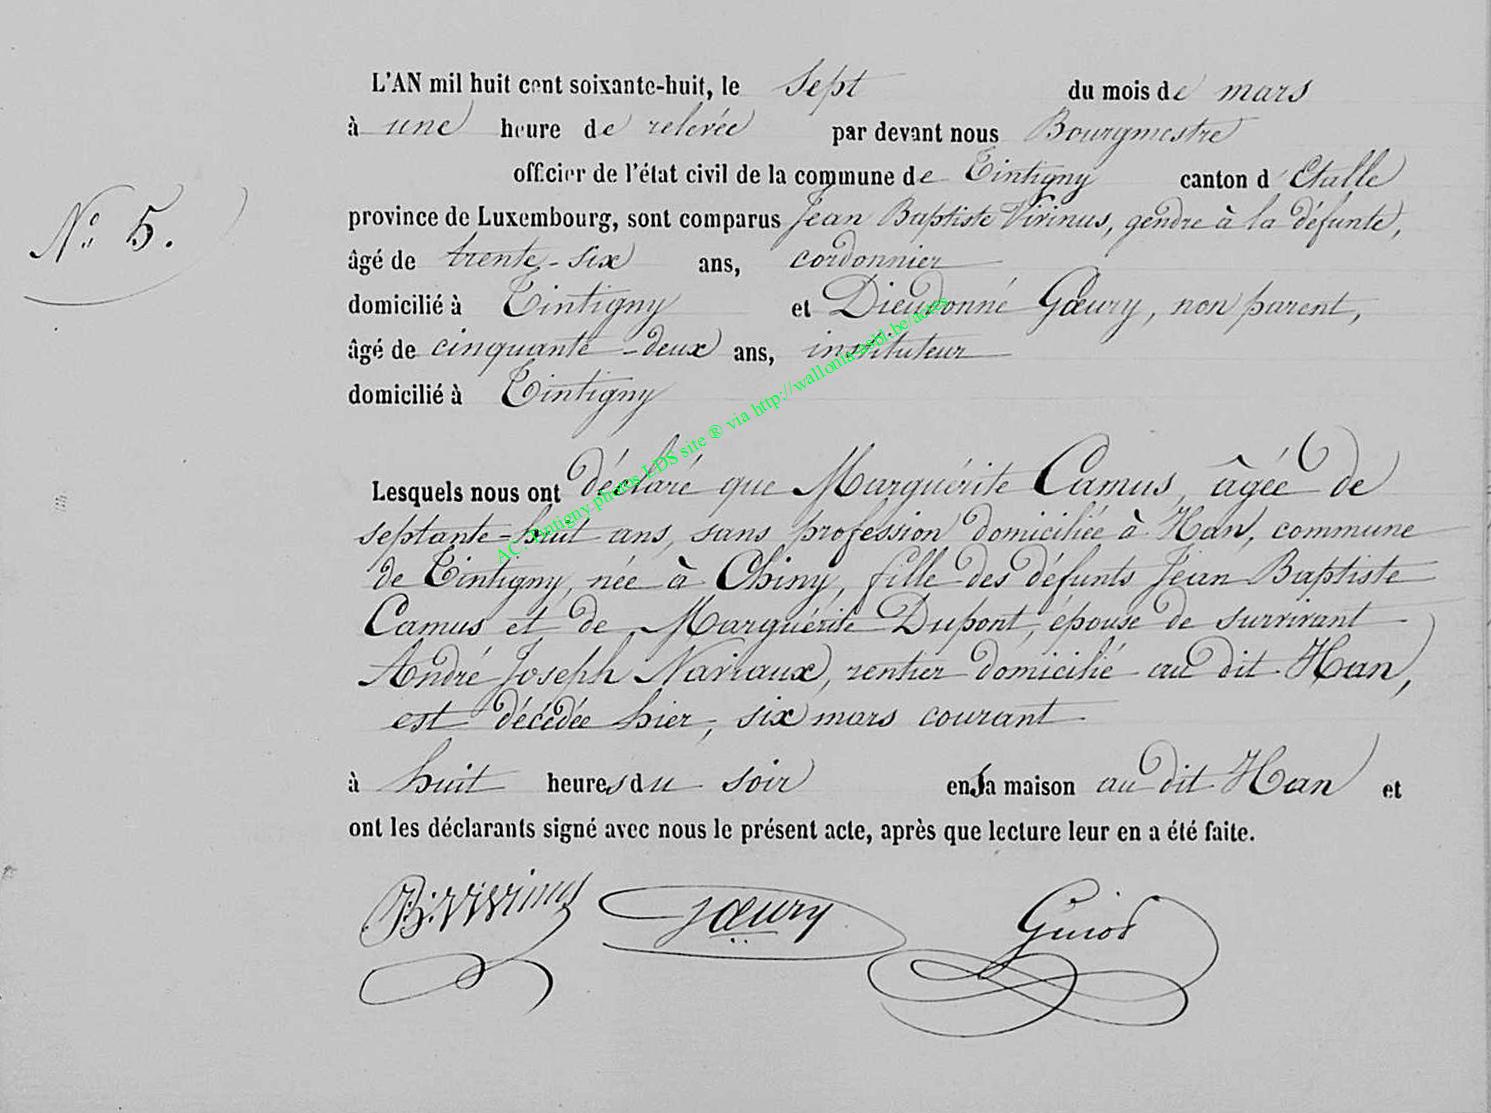 L'AN mil huit cent soixante-huit, le sept du mois de mars
à une heure de relevée par devant nous Bourgmestre
officier de l'état civil de la commune de Tintigny canton d'Etalle
N° 5.
province de Luxembourg, sont comparus Jean Baptiste Virinus, gendre à la défunte,
âgé de trente-six ans, cordonnier
domicilié à Tintigny et Dieudonné Gœury, non parent,
âgé de cinquante-deux ans, instituteur
domicilié à Tintigny
AC. Tintigny photos LDS site ® via http://wallonia-asbl.be/actes
Lesquels nous ont déclaré que Marguérite Camus, âgée de
septante-huit ans, sans profession domiciliée à Han, commune
de Tintigny, née à Chiny, fille des défunts Jean Baptiste
Camus et de Marguérite Dupont, épouse de survivant
André Joseph Naviaux, rentier domicilié au dit Han,
est décédée hier, six mars courant
à huit heures du soir en sa maison au dit Han et
ont les déclarants signé avec nous le présent acte, après que lecture leur en a été faite.
JB. Virinus Gœury Guiot